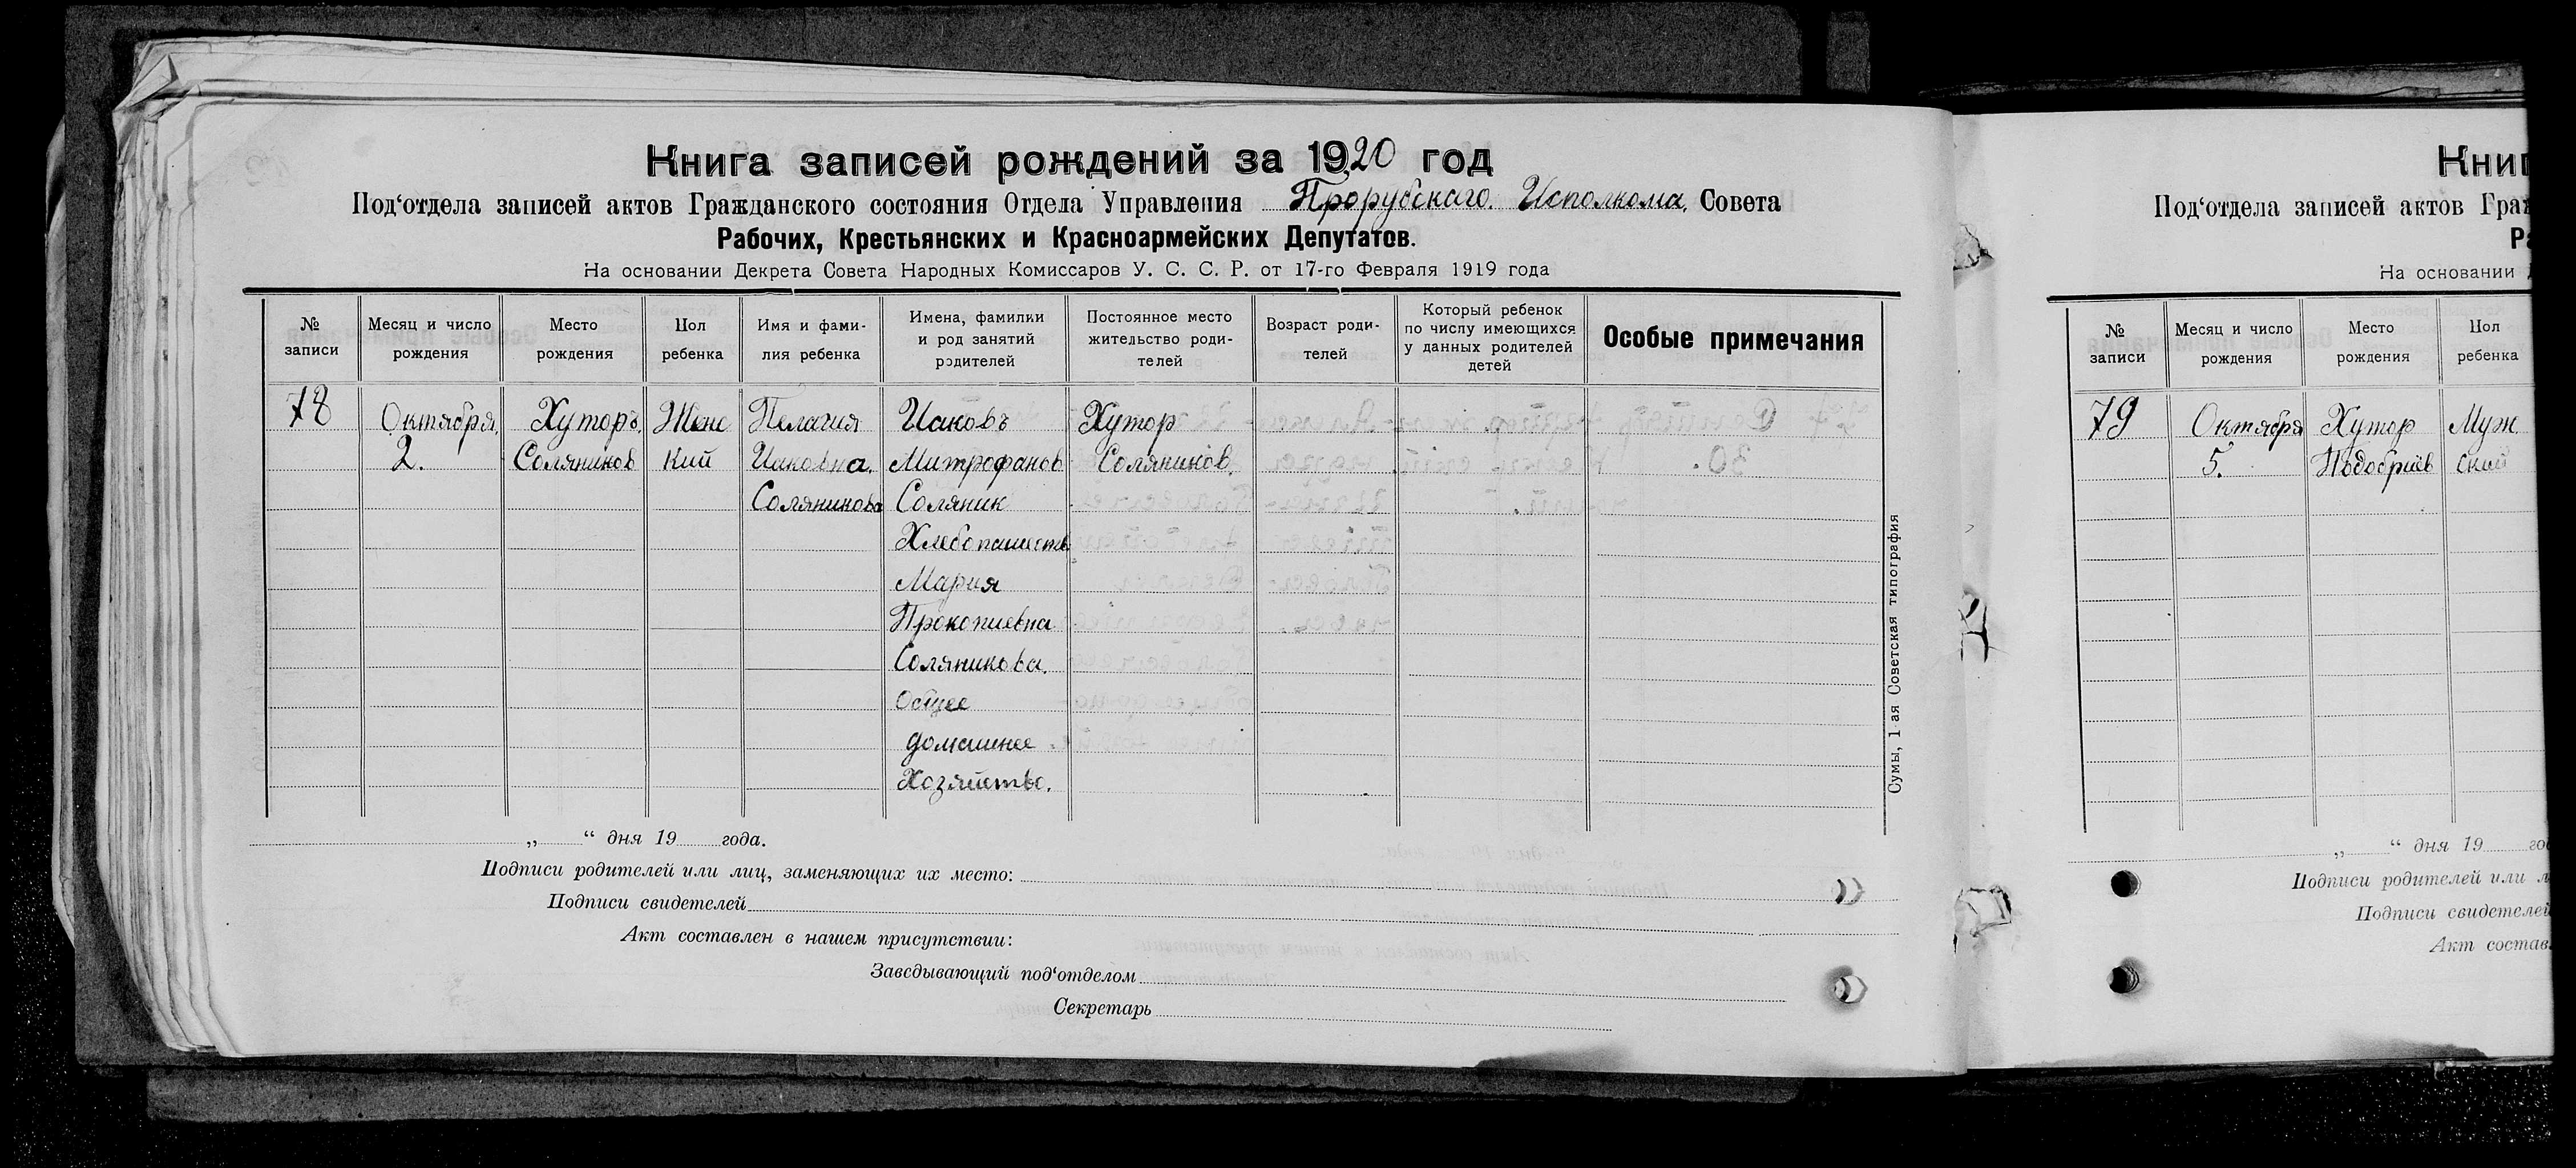 Книга записей рождений за 1920 год
Под‘отдела записей актов Гражданского состояния Отдела Управления Прорубскаго. Исполкома. Совета
Рабочих, Крестьянских и Красноармейских Депутатов.
На основании Декрета Совета Народных Комиссаров У. С. С. Р. от 17-го Февраля 1919 года
№ записи
Месяц и число рождения
Место рождения
Пол ребенка
Имя и фами-
лия ребенка
Имена, фамилии
и род занятий
родителей
Постоянное место
жительство роди-
телей
Возраст роди-
телей
Который ребенок
по числу имеющихся
у данных родителей
детей
Особые примечания
78 Октября Хуторъ Женс Пелагия Иаковъ Хутор
2. Соляников кий Иаковна. Митрофанов Соляников.
Соляникова Соляник
Хлебопашеств
Мария
Прокопиевна
Соляникова.
Общее
домашнее
Хозяйство.
„ “ дня 19 года.
Подписи родителей или лиц, заменяющих их место:
Подписи свидетелей
Акт составлен в нашем присутствии:
Заведывающий под‘отделом
Секретарь
Сумы, 1-ая Советская типография
Книг
Под‘отдела записей актов Граж
Ра
На основании
№ записи
Месяц и число рождения
Место рождения
Пол ребенка
79 Октября Хутор Муж
5. Подобриев ский
„ “ дня 19 го
Подписи родителей или л
Подписи свидетелей
Акт состав